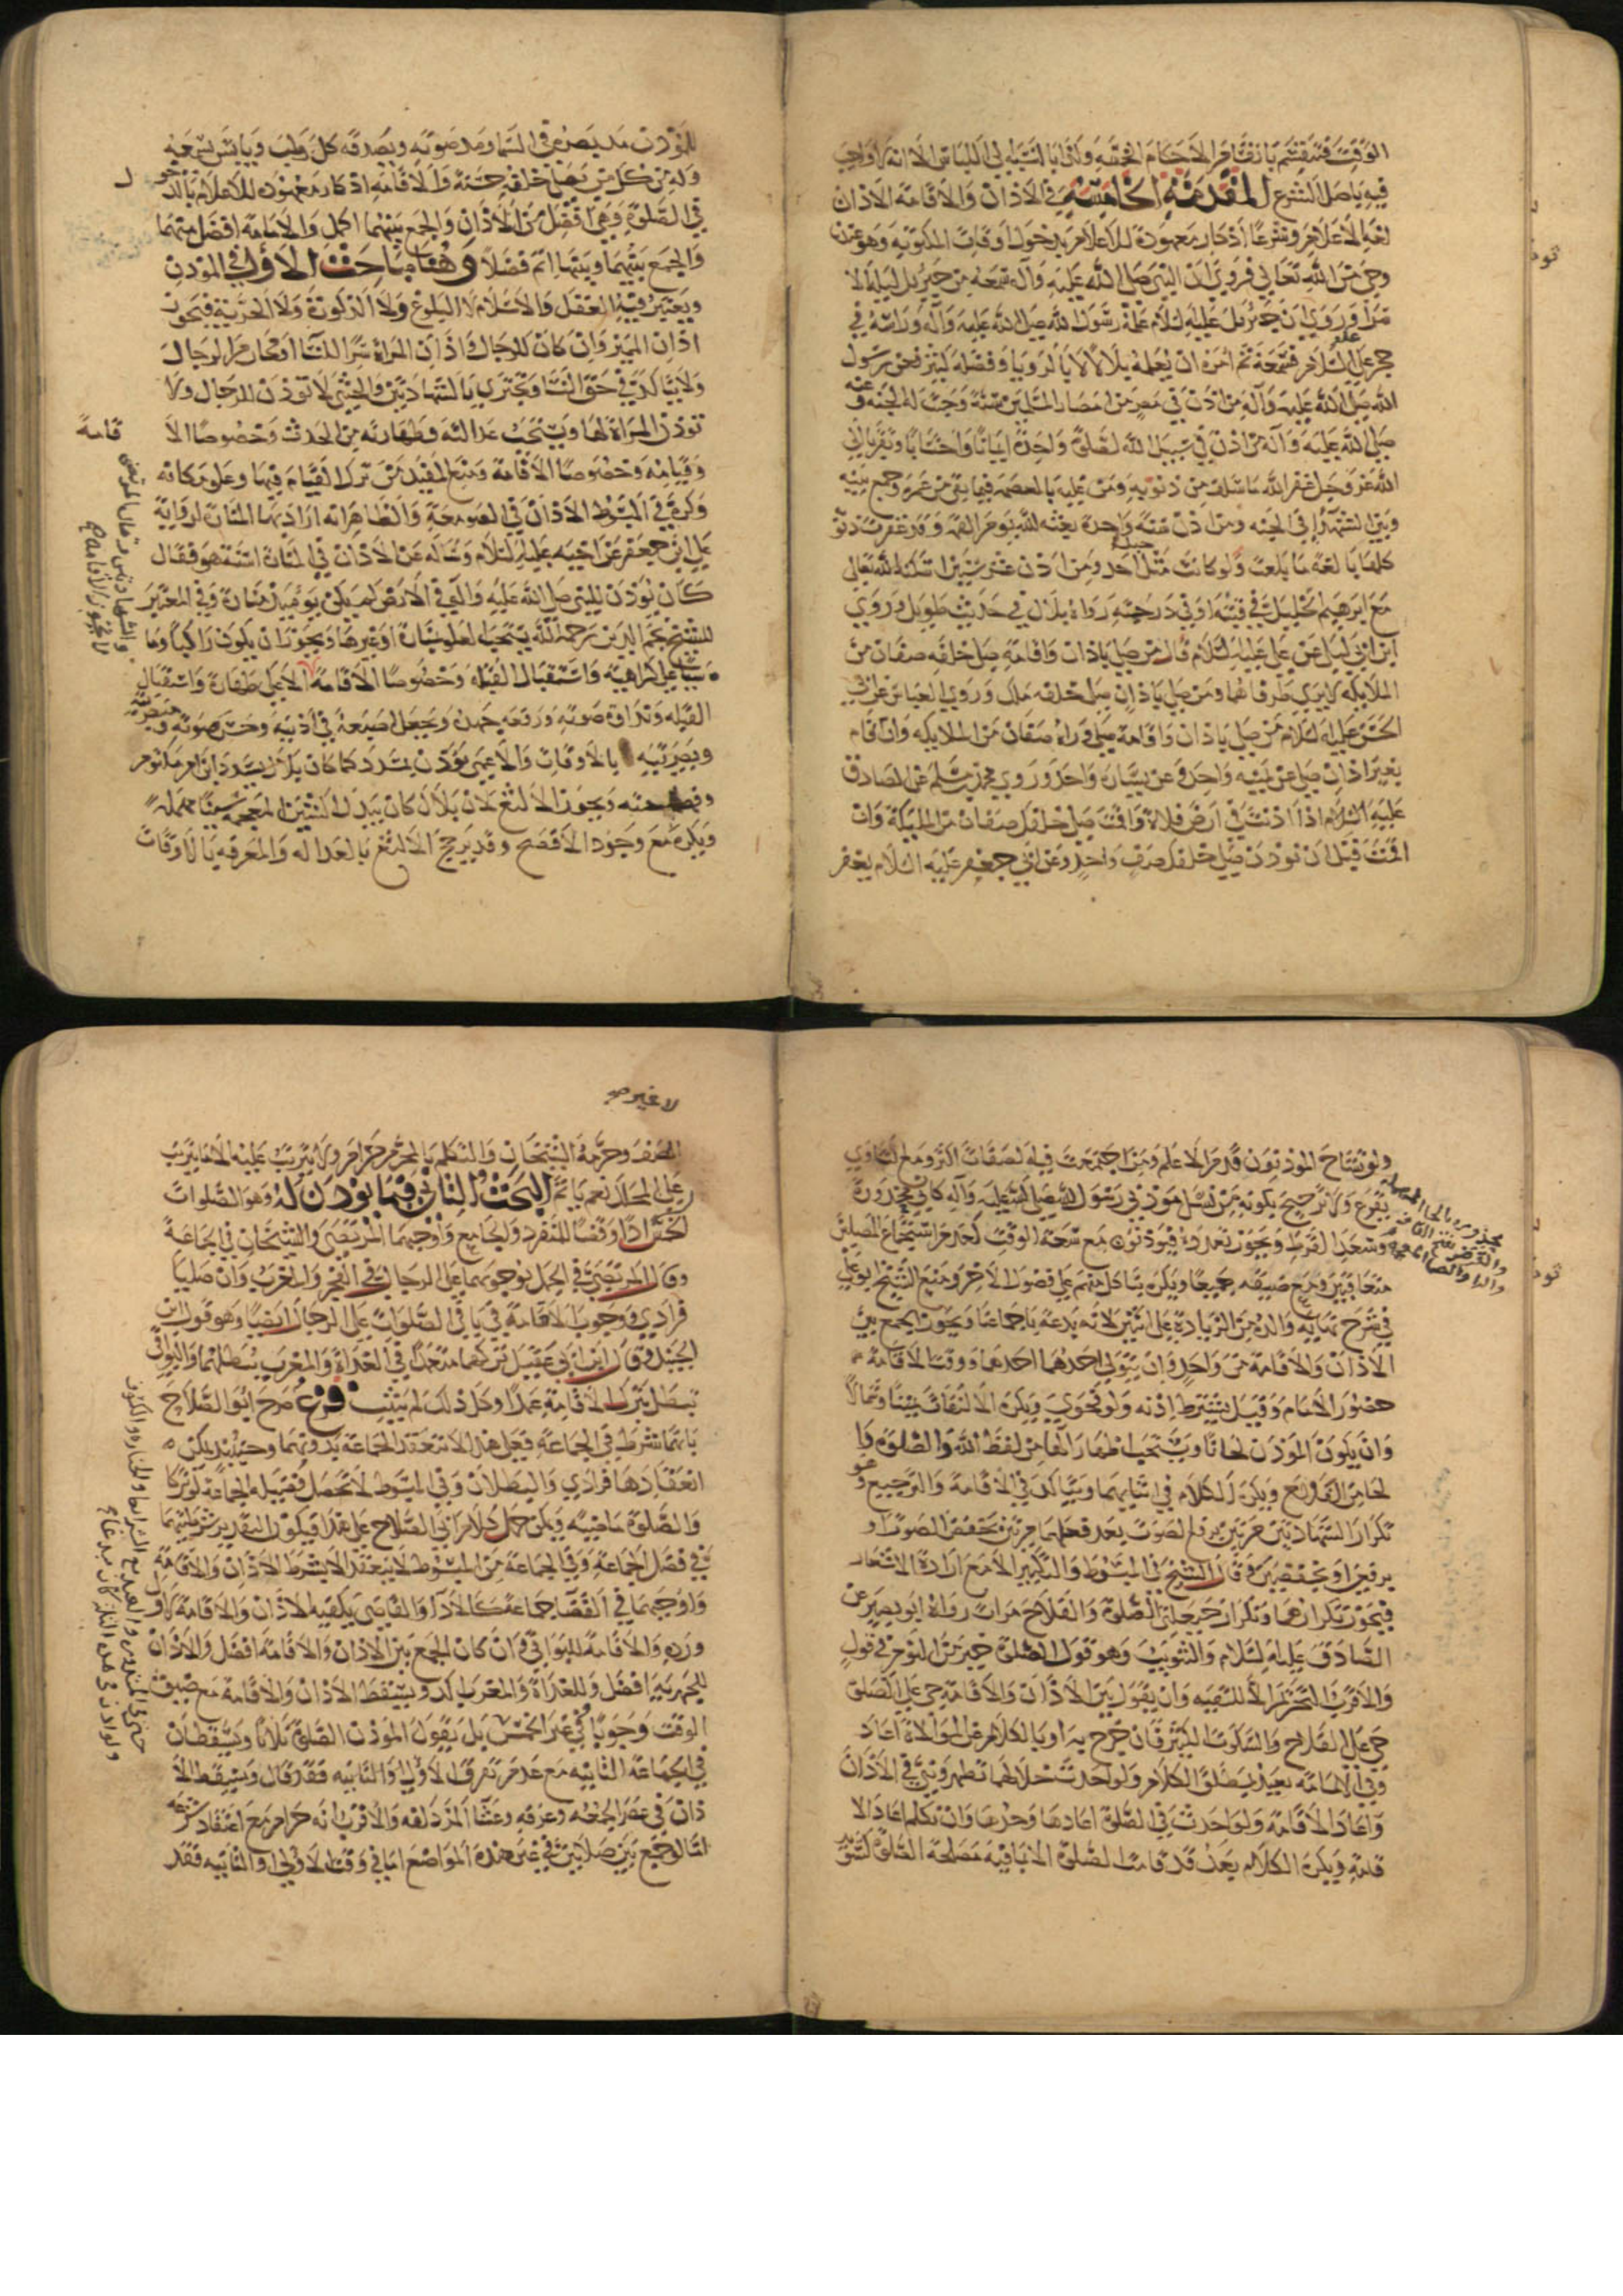 الوقت فينقسم بانقسام الاحكام الخمسة ولنا بالنسبة الى اللباس الا انه لا واجب
فيه باصل الشرع المقدمة الخامسة في الاذان والاقامة الاذان
لغة الاعلام وشرعا اذكار معهودة للاعلام بدخول اوقات المكتوبة وهو عندنا
وحي من الله تعالى فروي ان النبي صلى الله عليه وآله سمعه من جبرئيل ليلة الا
سرا وروي ان جبرئيل عليه السلام علمه رسول الله صلى الله عليه وآله وراسه في
حجر علي عليه السلام فسمعه ثم امره ان يعلمه بلالا لا بالرويا وفضله كثير فعن رسول
الله صلى الله عليه وآله من اذن في مصر من امصار المسلمين سنة وجبت له الجنة وعنه
صلى الله عليه وآله من اذن في سبيل الله لصلوة واحدة ايمانا واحتسابا وتقربا الى
الله عز وجل غفر الله ما سلف من ذنوبه ومن عليه بالعصمة فيما بقي من عمره وجمع بينه
وبين الشهدا في الجنة ومن اذن سنة واحدة بعثه الله يوم القيمة وقد غفرت ذنوبه
كلها بالغة ما بلغت ولو كانت مثل جبل احد ومن اذن عشر سنين اسكنه الله تعالى
مع ابرهيم الخليل في قبته او في درجته رواه بلال في حديث طويل وروي
ابن ابي ليلى عن علي عليه السلام قال من صلى باذان واقامة صلى خلفه صفان من
الملائكة لا يرى طرفاهما ومن صلى باذان صلى خلفه ملك وروي العباس عن ابي
الحسن عليه السلام من صلى باذان واقامة صلى وراه صفان من الملائكة وان اقام
بغير اذان صلى عن يمينه واحد وعن يساره واحد وروي محمد بن مسلم عن الصادق
عليه السلام اذا اذنت في ارض فلاة واقمت صلى خلفك صفان من الملائكة وان
اقمت قبل ان تؤذن صلى خلفك صف واحد وعن ابي جعفر عليه السلام يغفر
للمؤذن مد بصره في السما ومد صوته ويصدقه كل رطب ويابس يسمعه
وله من كل من يصلي خلفه حسنة والاقامة اذكار معهودة للاعلام بالدخول
في الصلوة وهي افضل من الاذان والجمع بينهما اكمل والامامة افضل منهما
والجمع بينهما وبينها اتم فضلا وهنا مباحث الاول في المؤذن
ويعتبر فيه العقل والاسلام لا البلوغ ولا الذكورة ولا الحرية فيجوز
اذان المميز وان كان للرجال واذان المراة سرا للنسا او محارم الرجال
ولا يتاكد في حق النسا ويجتزي بالشهادتين والخنثى لا تؤذن للرجال ولا
تؤذن المراة لها ويستحب عدالته وطهارته من الحدث وخصوصا الا
قامة
وقيامه وخصوصا الاقامة ومنع المفيد من ترك القيام فيها وعلو مكانه
وكره في المبسوط الاذان في الصومعة والظاهر انه اراد بها المنارة لرواية
علي بن جعفر عن اخيه عليه السلام وساله عن الاذان في المنارة اسنة هو فقال
كان يؤذن للنبي صلى الله عليه وآله في الارض لم يكن يومئذ منارة وفي المعتبر
للشيخ نجم الدين رحمه الله يستحب العلو بمنارة او غيرها ويجوز ان يكون راكبا وما
شيا على كراهية واستقبال القبلة وخصوصا الاقامة الا على طهارة واستقبال
القبلة ونداوة صوته ورفعه جهده ويجعل اصبعه في اذنيه وحسن صوته و
وبصيرته بالاوقات والاعمى يؤذن بمسدد كما كان بلال يسدد ابن ام مكتوم
وفصاحته ويجوز الالثغ لان بلال كان يبدل الشين المعجمة سينا مهملة
ويكره مع وجود الافصح وقد يرجح الالثغ بالعدالة والمعرفة بالاوقات
ولو تشاح المؤذنون قدم الاعلم ومن اجتمعت فيه الصفات اكثر ومع التساوي
يقرع ولا ترجيح بكونه من نسل مؤذني رسول الله صلى الله عليه وآله كابي محذورة
وسعد القرظ ويجوز تعدده فيؤذنون مع سعة الوقت لعدم استجماع المصلين
متعاقبين ومع ضيقه جميعا ويكره بنا كل منهم على فصول الاخر ومنع الشيخ ابو علي
في شرح نهاية والده من الزيادة على اثنين لانه بدعة باجماعنا ويجوز الجمع بين
الاذان والاقامة من واحد وان يتولى احدهما احدهما ووقت الاقامة
حضور الامام وقيل يشترط اذنه ولو فحوى ويكره الالتفات يمينا وشمالا
وان يكون المؤذن لحانا ويستحب اظهار الها من لفظ الله والصلوة وا
لحا من الفلاح ويكره الكلام في اثنايهما ويتاكد في الاقامة والترجيع وهو
تكرار الشهادتين مرتين برفع الصوت بعد فعلهما مرتين بخفض الصوت او
برفعين او بخفضين قال الشيخ في المبسوط والتكبير الا مع ارادة الاشعار
فيجوز تكرارهما وتكرار حيعلتي الصلوة والفلاح مرات رواه ابو بصير عن
الصادق عليه السلام والتثويب وهو قول الصلوة خير من النوم في قول
والاقرب التحريم الا للتقية وان يقول بين الاذان والاقامة حي على الصلوة
حي على الفلاح والسكوت الكثير فان خرج به او بالكلام عن الموالاة اعاد
وفي الاقامة يعيد بمطلق الكلام ولو احدث خلالهما تطهر وبنى في الاذان
واعاد الاقامة ولو احدث في الصلوة اعادها وحدها وان تكلم اعاد الا
قامة ويكره الكلام بعد قد قامت الصلوة الا بما فيه مصلحة الصلوة كتسوية
لا غير
الصف وحرمه الشيخان والتكلم بالمحرم حرام ولا يترتب عليه الا ما يترتب
على المحلل نعم ياثم البحث الثاني فيما يؤذن له وهو الصلوات
الخمس ادا وقضا للمنفرد والجامع واوجبهما المرتضى والشيخان في الجماعة
وقال المرتضى في الجمل بوجوبهما على الرجال في الفجر والمغرب وان صليا
فرادى ووجوب الاقامة في باقي الصلوات على الرجال ايضا وهو قول ابن
الجنيد وقال ابن ابي عقيل تركهما متعمدا في الغداة والمغرب يبطلهما والبواقي
تبطل بترك الاقامة عمدا وكل ذلك لم يثبت فرع صرح ابو الصلاح
بانهما شرط في الجماعة فعلى هذا لا تنعقد الجماعة بدونهما وحينئذ يمكن
انعقادها فرادى والبطلان وفي المبسوط لا تحصل فضيلة الجماعة لو تركا
والصلوة ماضية ويمكن حمل كلام ابي الصلاح على هذا فيكون التقدير شرطيتهما
في فضل الجماعة وفي الجماعة من المبسوط لا ينعقد الا بشرط الاذان والاقامة
واوجبهما في القضا جماعة كالادا والقاضي يكفيه الاذان والاقامة لاول
ورده والاقامة للبواقي وان كان الجمع بين الاذان والاقامة افضل والاذان
للجهرية افضل وللغداة والمغرب اكد ويسقط الاذان والاقامة مع ضيق
الوقت وجوبا في غير الخمس بل يقول المؤذن الصلوة ثلاثا ويسقطان
في الجماعة الثانية مع عدم تفرق الاولى والثانية فقد قال ويسقط الا
ذان في عصر الجمعة وعرفة وعشا المزدلفة والاقرب انه حرام مع اعتقاد شرعه
اما لو جمع بين صلاتين في غير هذه المواضع اما في وقت الاولى او الثانية فقد